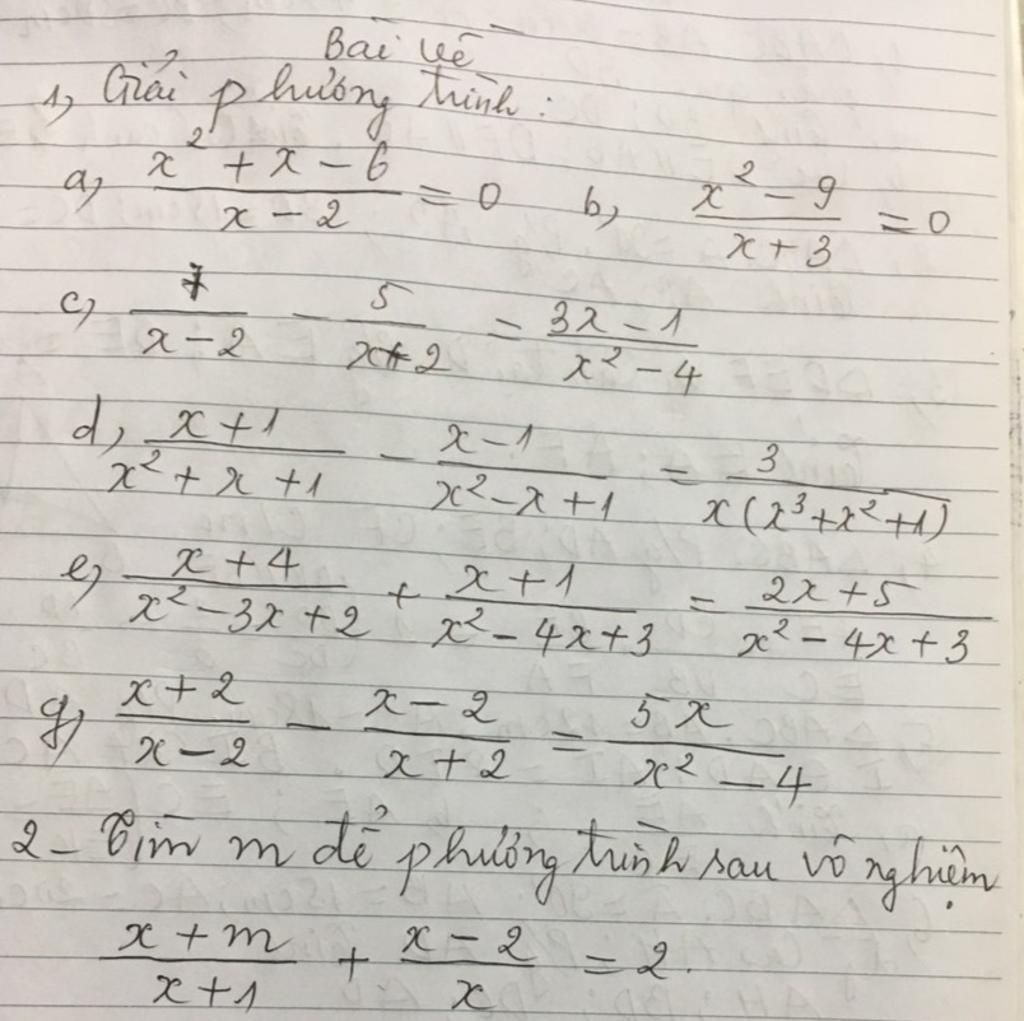 Bài về
1, Giải phương trình:
a, (x² + x - 6)/(x - 2) = 0 b, (x² - 9)/(x + 3) = 0
c, 7/(x - 2) - 5/(x + 2) = (3x - 1)/(x² - 4)
d, (x + 1)/(x² + x + 1) - (x - 1)/(x² - x + 1) = 3/(x(x³ + x² + 1))
e, (x + 4)/(x² - 3x + 2) + (x + 1)/(x² - 4x + 3) = (2x + 5)/(x² - 4x + 3)
g, (x + 2)/(x - 2) - (x - 2)/(x + 2) = 5x/(x² - 4)
2 - Tìm m để phương trình sau vô nghiệm
(x + m)/(x + 1) + (x - 2)/x = 2.